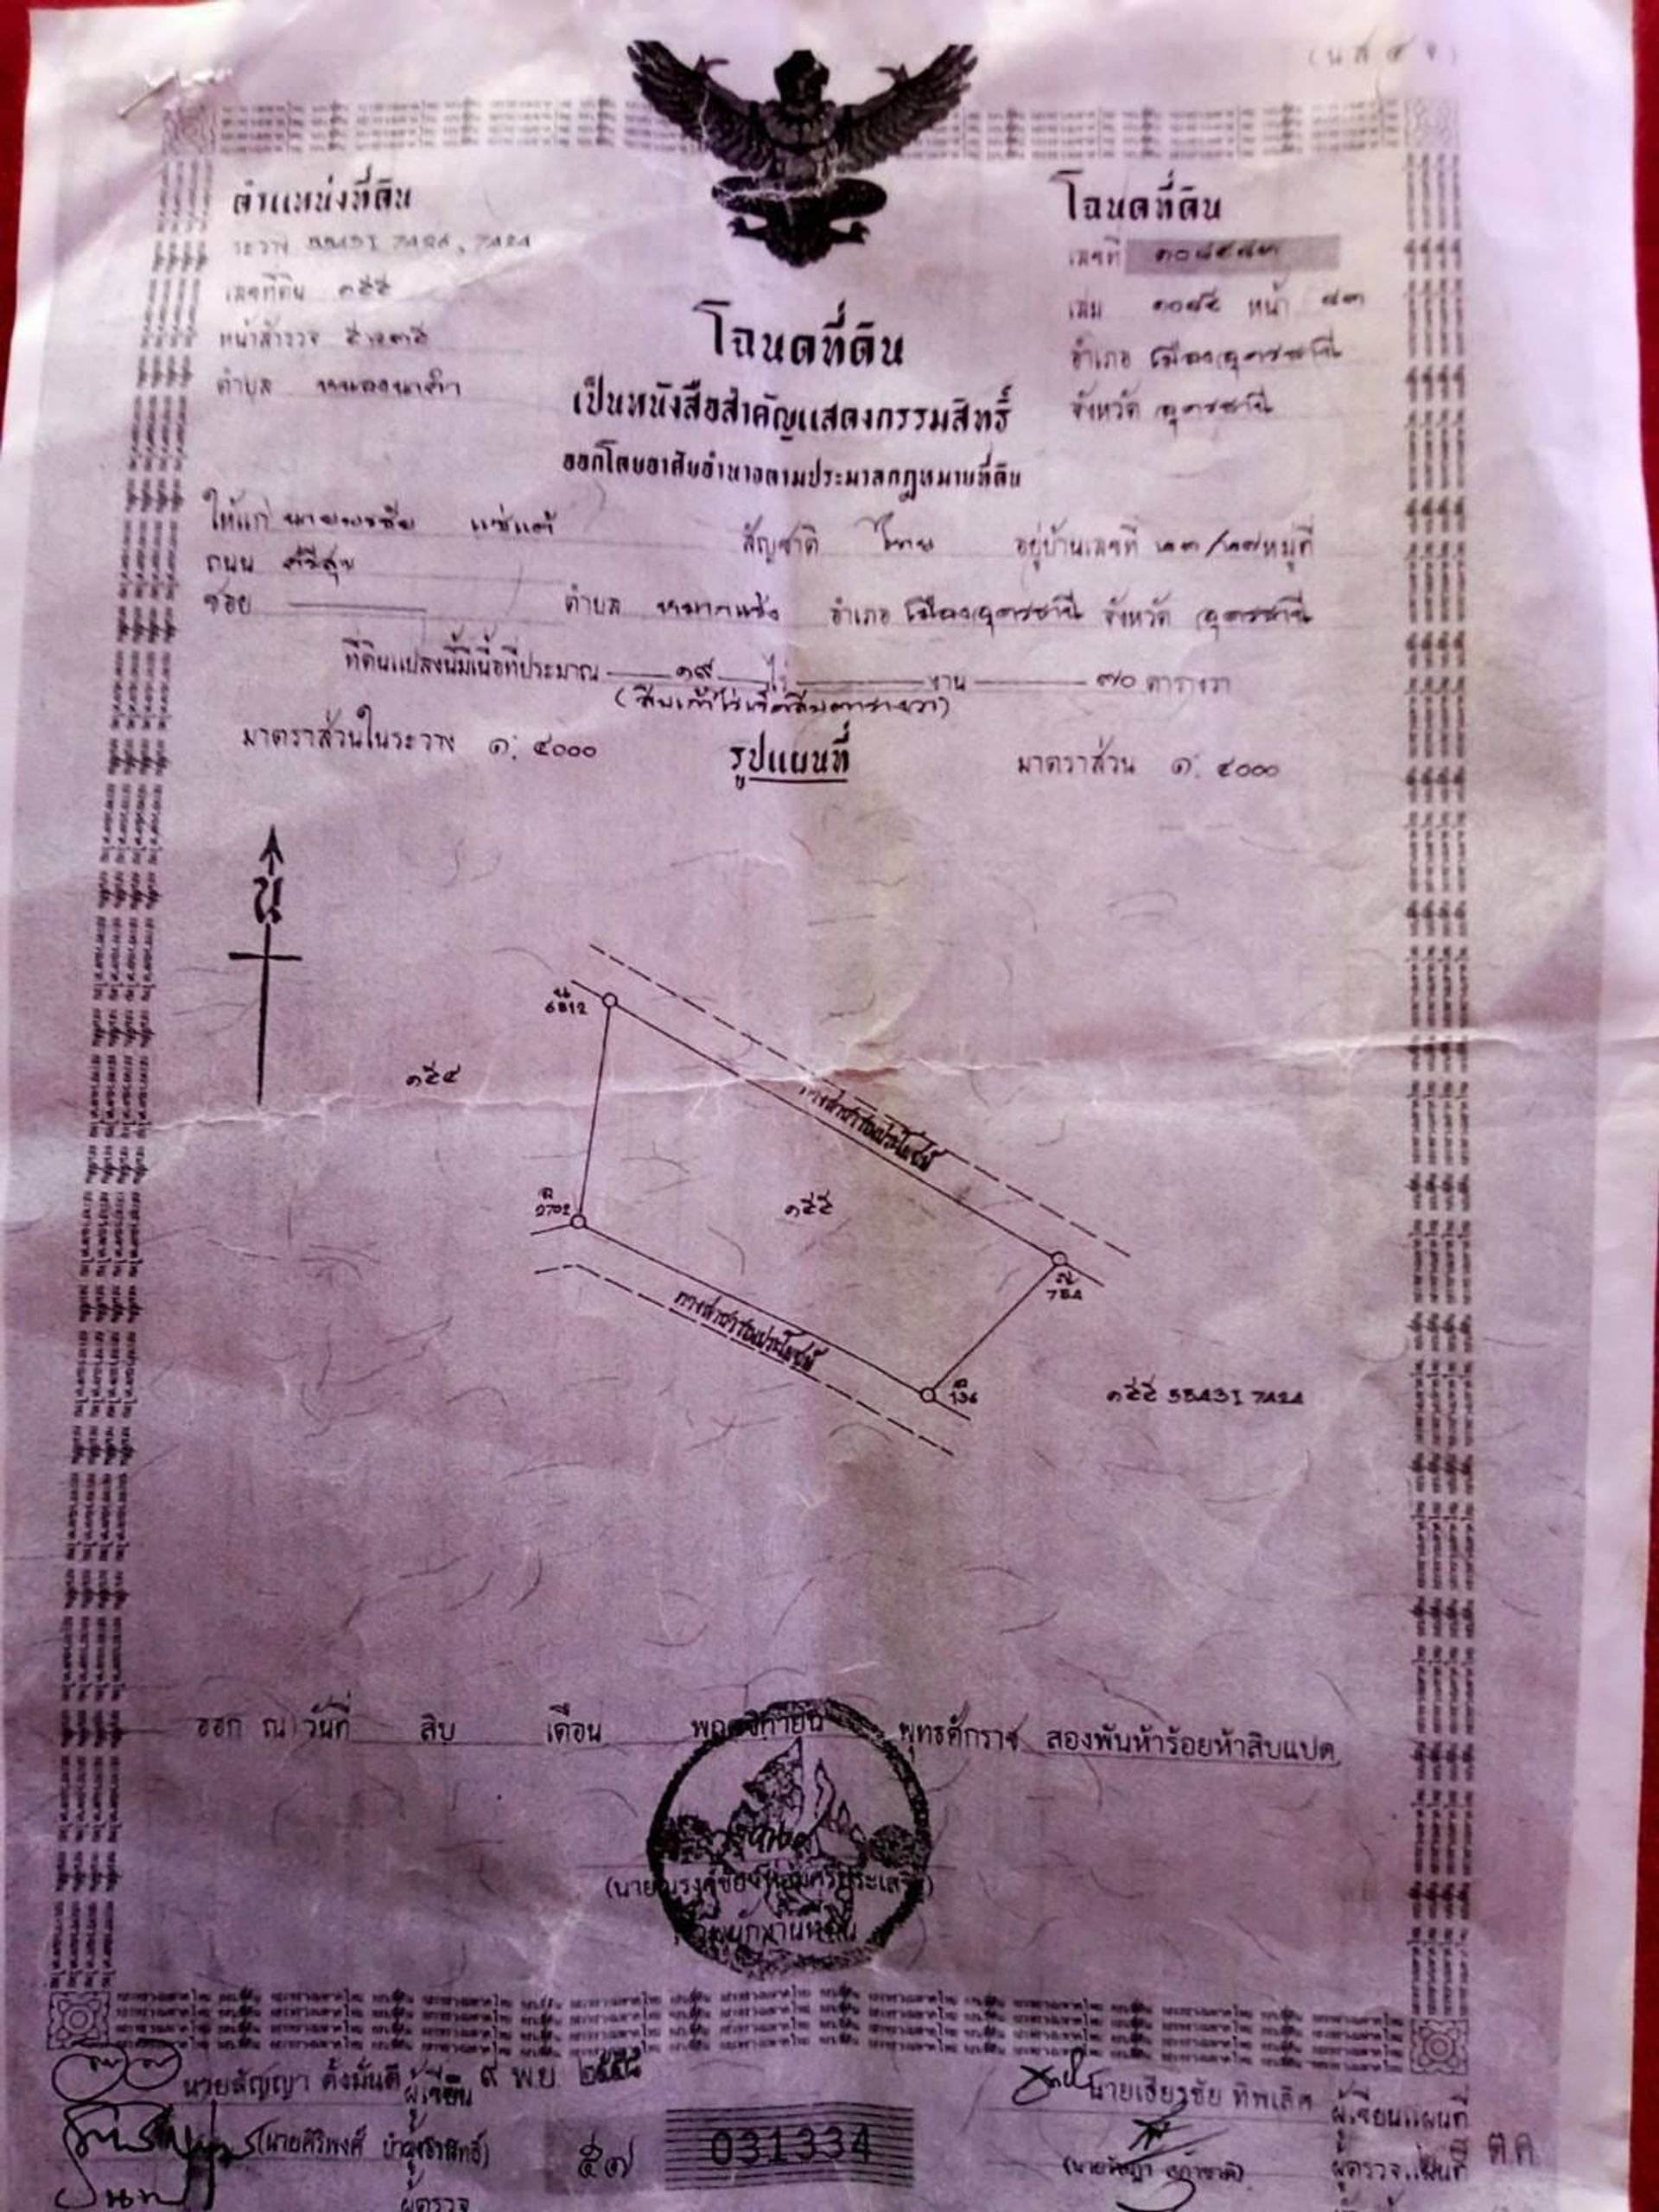 (น ส ๔ จ)
ตำแหน่งที่ดิน
ระวาง 5543I 7426, 7424
เลขที่ดิน ๑๕๕
หน้าสำรวจ
ตำบล หนองนาคำ
โฉนดที่ดิน
เลขที่ ๑๐๘๕๘๓
เล่ม ๑๐๘๕ หน้า ๘๓
อำเภอ เมืองอุดรธานี
จังหวัด อุดรธานี
โฉนดที่ดิน
เป็นหนังสือสำคัญแสดงกรรมสิทธิ์
ออกโดยอาศัยอำนาจตามประมวลกฎหมายที่ดิน
ให้แก่ นายพรชัย แซ่แต้ สัญชาติ ไทย อยู่บ้านเลขที่ ๒๓/๒๗ หมู่ที่
ถนน ศรีสุข
ซอย ตำบล หมากแข้ง อำเภอ เมืองอุดรธานี จังหวัด อุดรธานี
ที่ดินแปลงนี้มีเนื้อที่ประมาณ ๑๙ ไร่ งาน ๗๐ ตารางวา
(สิบเก้าไร่เจ็ดสิบตารางวา)
มาตราส่วนในระวาง ๑: ๔๐๐๐ รูปแผนที่ มาตราส่วน ๑: ๔๐๐๐
น
น 6812
๑๕๔
ทางสาธารณประโยชน์
2702
๑๕๕
784
ทางสาธารณประโยชน์
136
๑๕๕ 5543I 7424
ออก ณ วันที่ สิบ เดือน พฤศจิกายน พุทธศักราช สองพันห้าร้อยห้าสิบแปด
เจ้าพนักงานที่ดิน
นายสัญญา ตั้งมั่นดี ผู้เขียน ๙ พ.ย. ๒๕๕๘
(นายศิริพงศ์ บำรุงราสิทธิ์)
ผู้ตรวจ
๕๗
031334
นายเธียรชัย ทิพเลิศ ผู้เขียนแผนที่
ผู้ตรวจแผนที่
ต.ค.